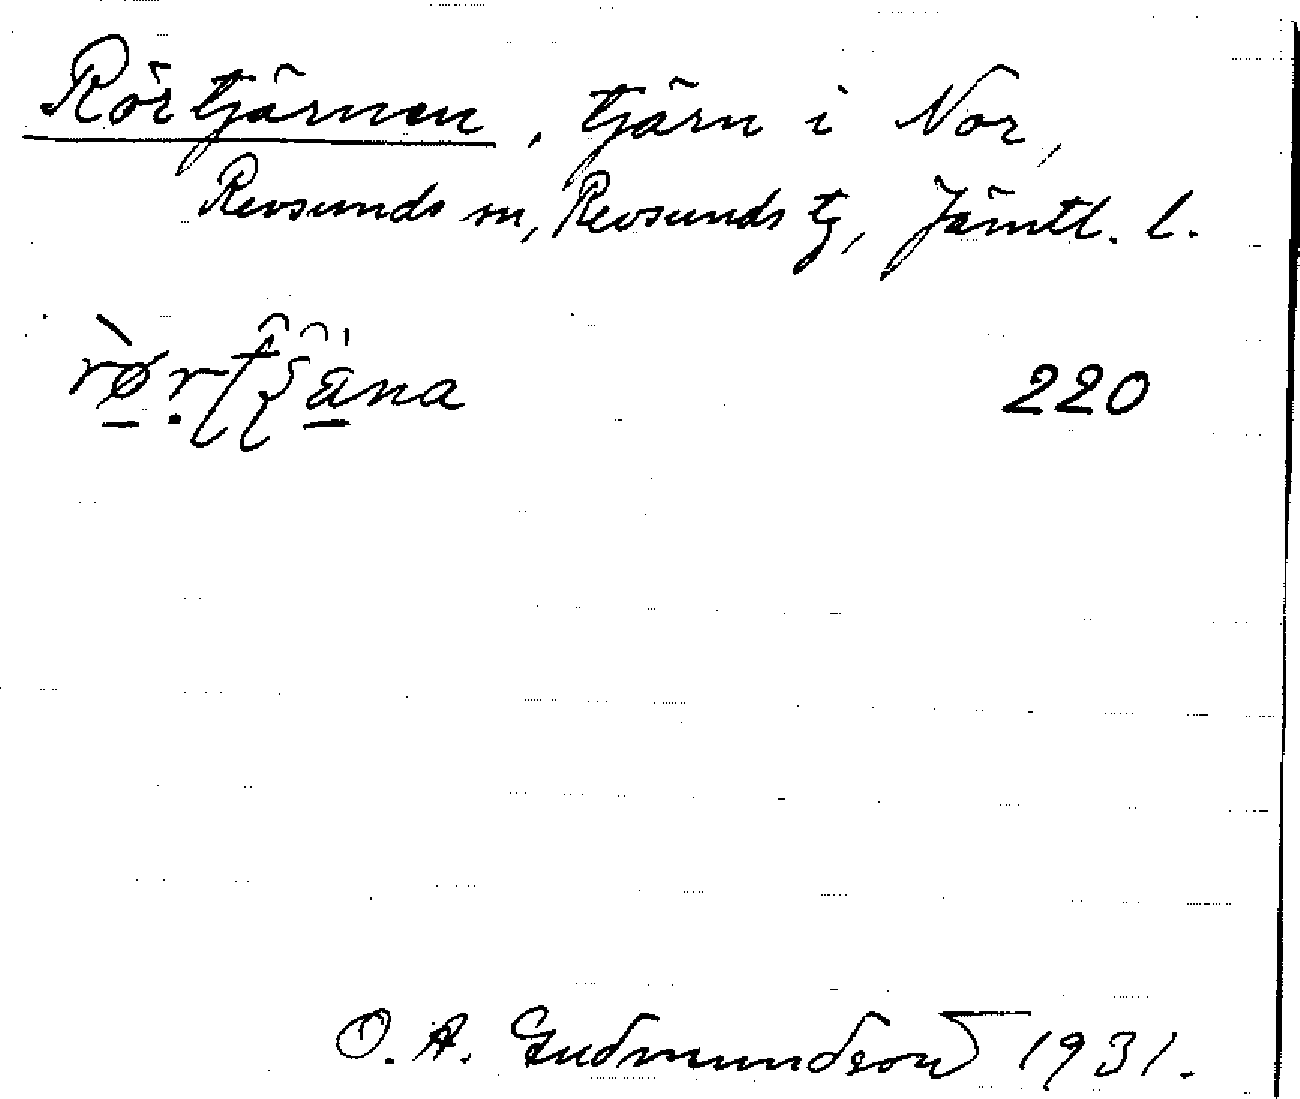 Rörtjärnen, tjärn i Nor,
Revsunds sn, Revsunds tg, Jämtl. l.
220
O. A. Gudmundson 1931.